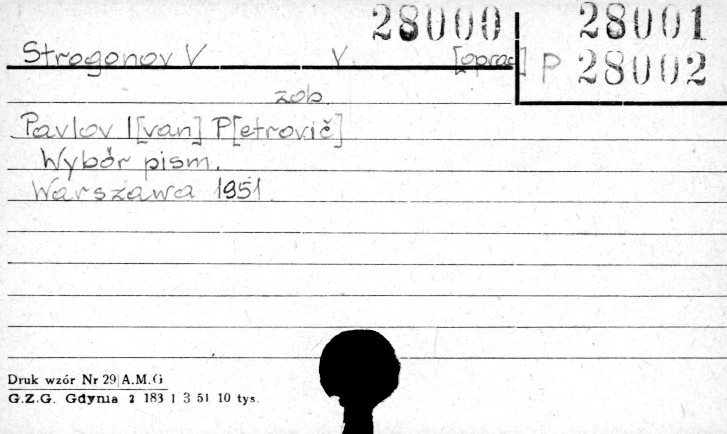 28000 28001
Strogonov V V. [oprac] P 28002
zob.
Pavlov I[van] P[etrovič]
Wybór pism.
Warszawa 1951.
Druk wzór Nr 29 A.M.G
G.Z.G. Gdynia 2 183 1 3 51 10 tys.